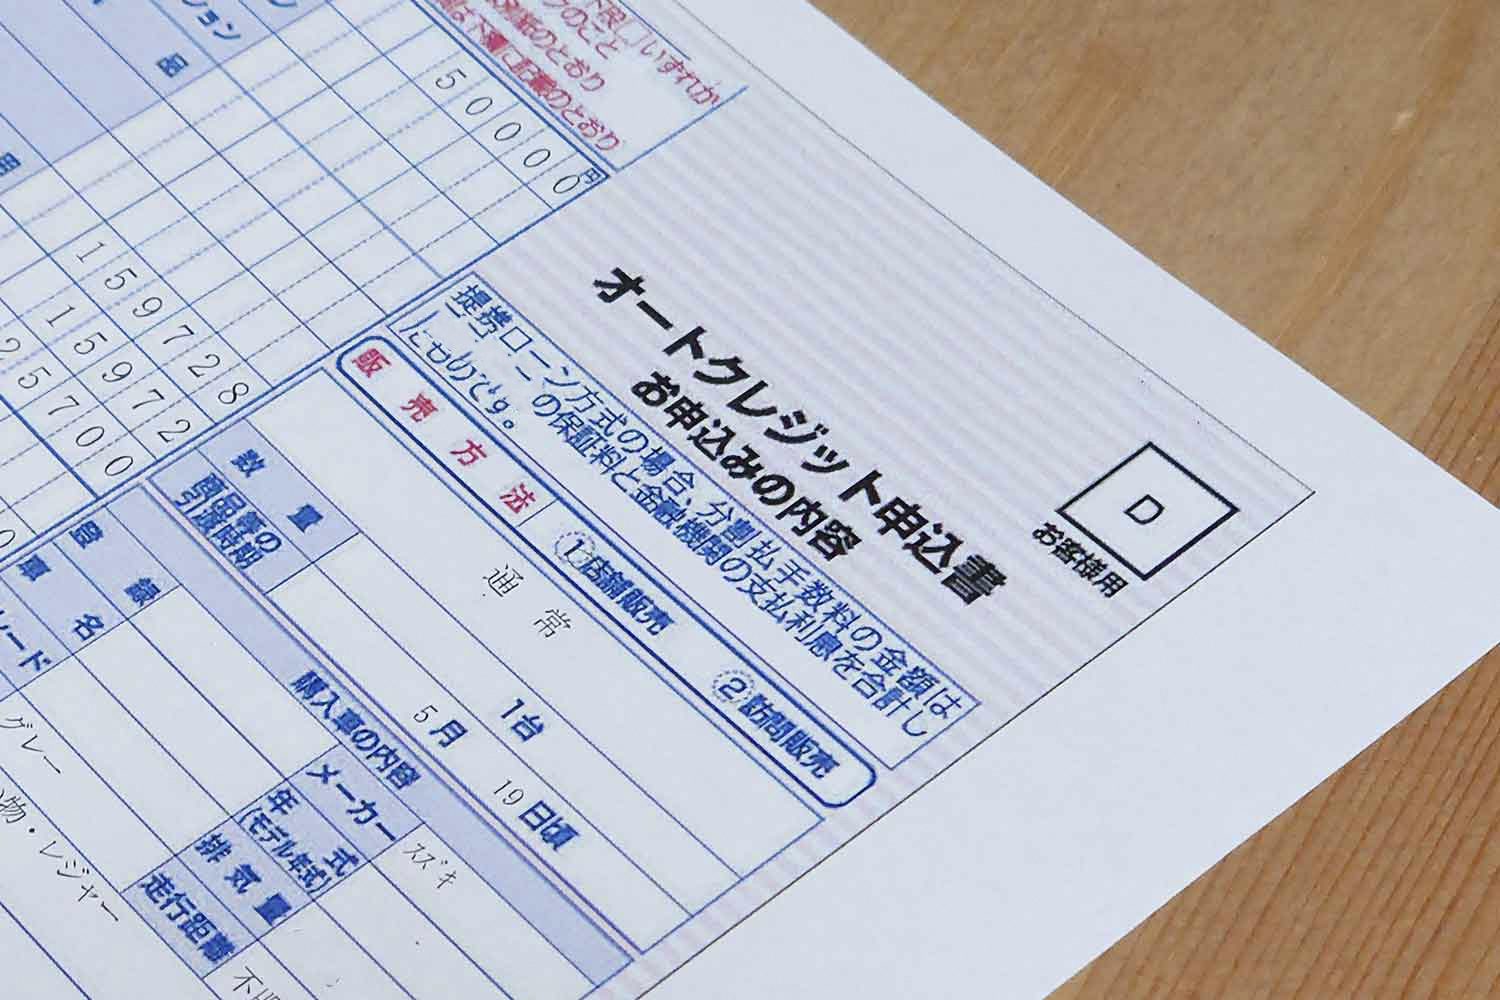 オートクレジット申込書
お申込みの内容
D
お客様用
提携ローン方式の場合、分割払手数料の金額は
の保証料と金融機関の支払利息を合計し
たものです。
販売方法
①店舗販売
②訪問販売
通常
数量
1台
商品等の
引渡時期
5月
19日頃
購入車の内容
メーカー
スズキ
年式
(モデル年式)
排気量
走行距離
いずれか
のこと
のとおり
下欄に記載のとおり
50000円
159728
15972
25700
グレー
物・レジャー